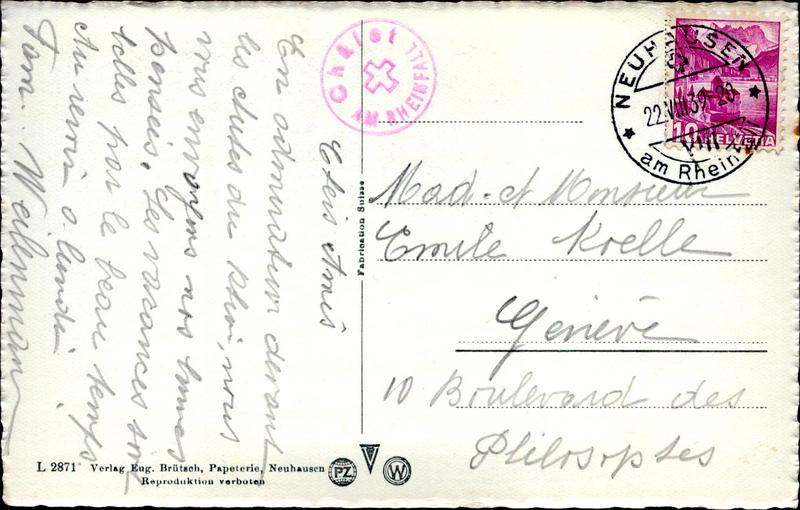 Chers Amis
En admiration devant
les chutes du Rhin, nous
vous envoyons nos bonnes
pensées, Les vacances sont
belles par le beau temps
Au revoir à lundi
Fam.
Châlet
AM. RHEINFALL
NEUHAUSEN
22.VIII.39-20
am Rheinfall
10 HELVETIA
Fabrication Suisse
Mad- et Monsieur
Emile Krelle
Genève
10 Boulevard des
Philosophes
L 2871 Verlag Eug. Brütsch, Papeterie, Neuhausen
Reproduktion verboten
PZ
W